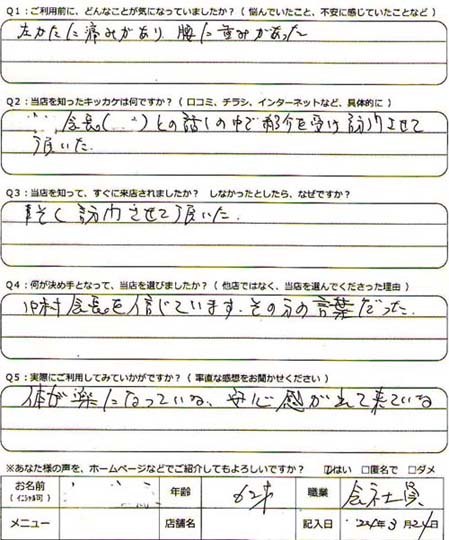 Q1：ご利用前に、どんなことが気になっていましたか？（ 悩んでいたこと、不安に感じていたことなど ）
左かたに痛みがあり 腰に重みがあった
Q2：当店を知ったキッカケは何ですか？（ 口コミ、チラシ、インターネットなど、具体的に ）
会長( )との話しの中で紹介を受け訪門させて
頂いた.
Q3：当店を知って、すぐに来店されましたか？ しなかったとしたら、なぜですか？
訪門させて頂いた.
Q4：何が決め手となって、当店を選びましたか？（ 他店ではなく、当店を選んでくださった理由 ）
中村会長を信じています. その方の言葉だった.
Q5：実際にご利用してみていかがですか？（ 率直な感想をお聞かせください ）
体が楽になっている、安心感が出て来ている
※あなた様の声を、ホームページなどでご紹介してもよろしいですか？ ☑はい □匿名で □ダメ
お名前（イニシャル可） 年齢 62才 職業 会社員
メニュー 店舗名 記入日 '24年3月24日